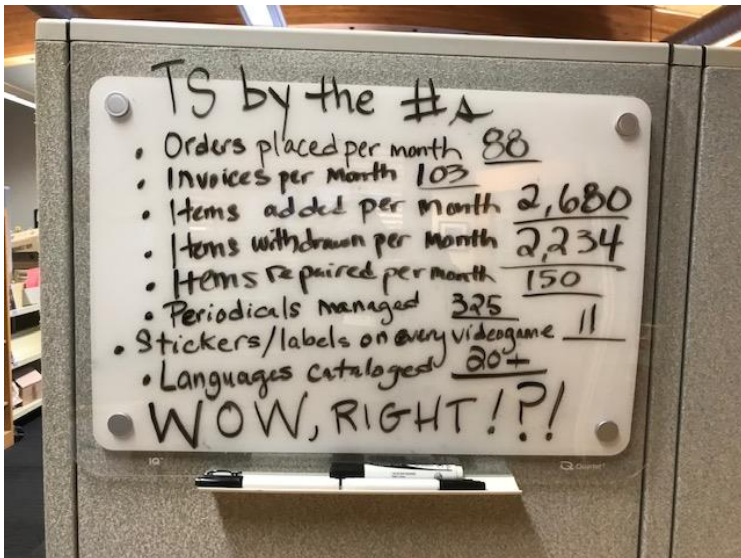 TS by the #s
• Orders placed per month 88
• Invoices per Month 103
• Items added per month 2,680
• Items withdrawn per month 2,234
• Items repaired per month 150
• Periodicals managed 325
• Stickers/labels on every videogame 11
• Languages cataloged 20+
WOW, RIGHT!?!
IQ
Quartet